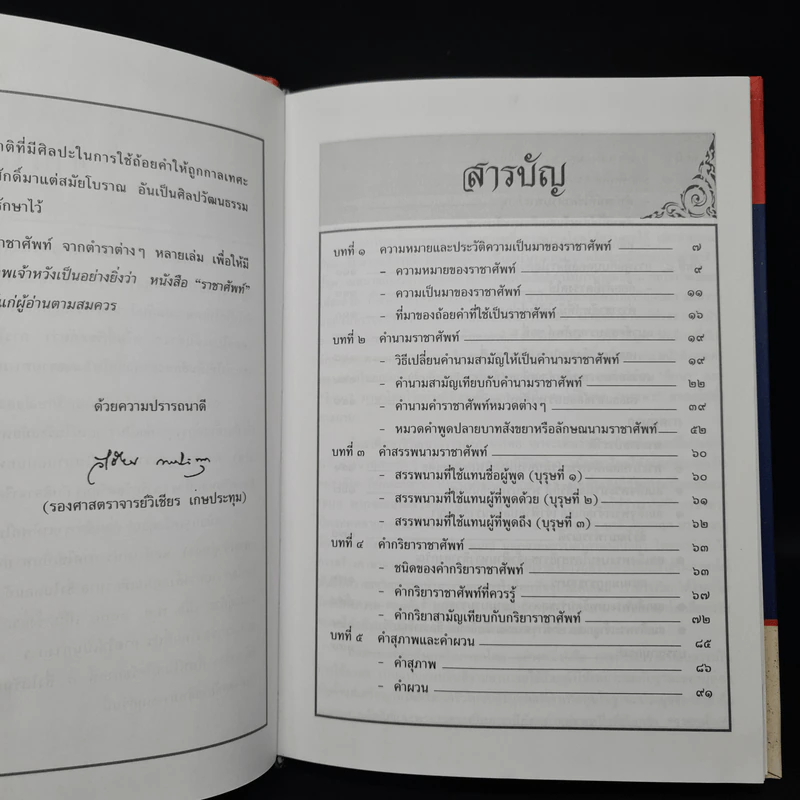 าติที่มีศิลปะในการใช้ถ้อยคำให้ถูกกาลเทศะ
ศักดิ์มาแต่สมัยโบราณ อันเป็นศิลปวัฒนธรรม
รักษาไว้
าชาศัพท์ จากตำราต่างๆ หลายเล่ม เพื่อให้มี
พเจ้าหวังเป็นอย่างยิ่งว่า หนังสือ “ราชาศัพท์”
แก่ผู้อ่านตามสมควร
ด้วยความปรารถนาดี
(รองศาสตราจารย์วิเชียร เกษประทุม)
สารบัญ
บทที่ ๑ ความหมายและประวัติความเป็นมาของราชาศัพท์ ๗
- ความหมายของราชาศัพท์ ๙
- ความเป็นมาของราชาศัพท์ ๑๑
- ที่มาของถ้อยคำที่ใช้เป็นราชาศัพท์ ๑๖
บทที่ ๒ คำนามราชาศัพท์ ๑๙
- วิธีเปลี่ยนคำนามสามัญให้เป็นคำนามราชาศัพท์ ๑๙
- คำนามสามัญเทียบกับคำนามราชาศัพท์ ๒๒
- คำนามคำราชาศัพท์หมวดต่างๆ ๓๙
- หมวดคำพูดปลายบาทสังขยาหรือลักษณนามราชาศัพท์ ๕๒
บทที่ ๓ คำสรรพนามราชาศัพท์ ๖๐
- สรรพนามที่ใช้แทนชื่อผู้พูด (บุรุษที่ ๑) ๖๐
- สรรพนามที่ใช้แทนผู้ที่พูดด้วย (บุรุษที่ ๒) ๖๑
- สรรพนามที่ใช้แทนผู้ที่พูดถึง (บุรุษที่ ๓) ๖๒
บทที่ ๔ คำกริยาราชาศัพท์ ๖๓
- ชนิดของคำกริยาราชาศัพท์ ๖๓
- คำกริยาราชาศัพท์ที่ควรรู้ ๖๗
- คำกริยาสามัญเทียบกับกริยาราชาศัพท์ ๗๒
บทที่ ๕ คำสุภาพและคำผวน ๘๕
- คำสุภาพ ๘๖
- คำผวน ๙๑